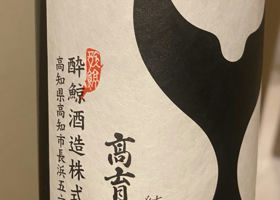 高育
酔鯨
酔鯨酒造株式
高知県高知市長浜五